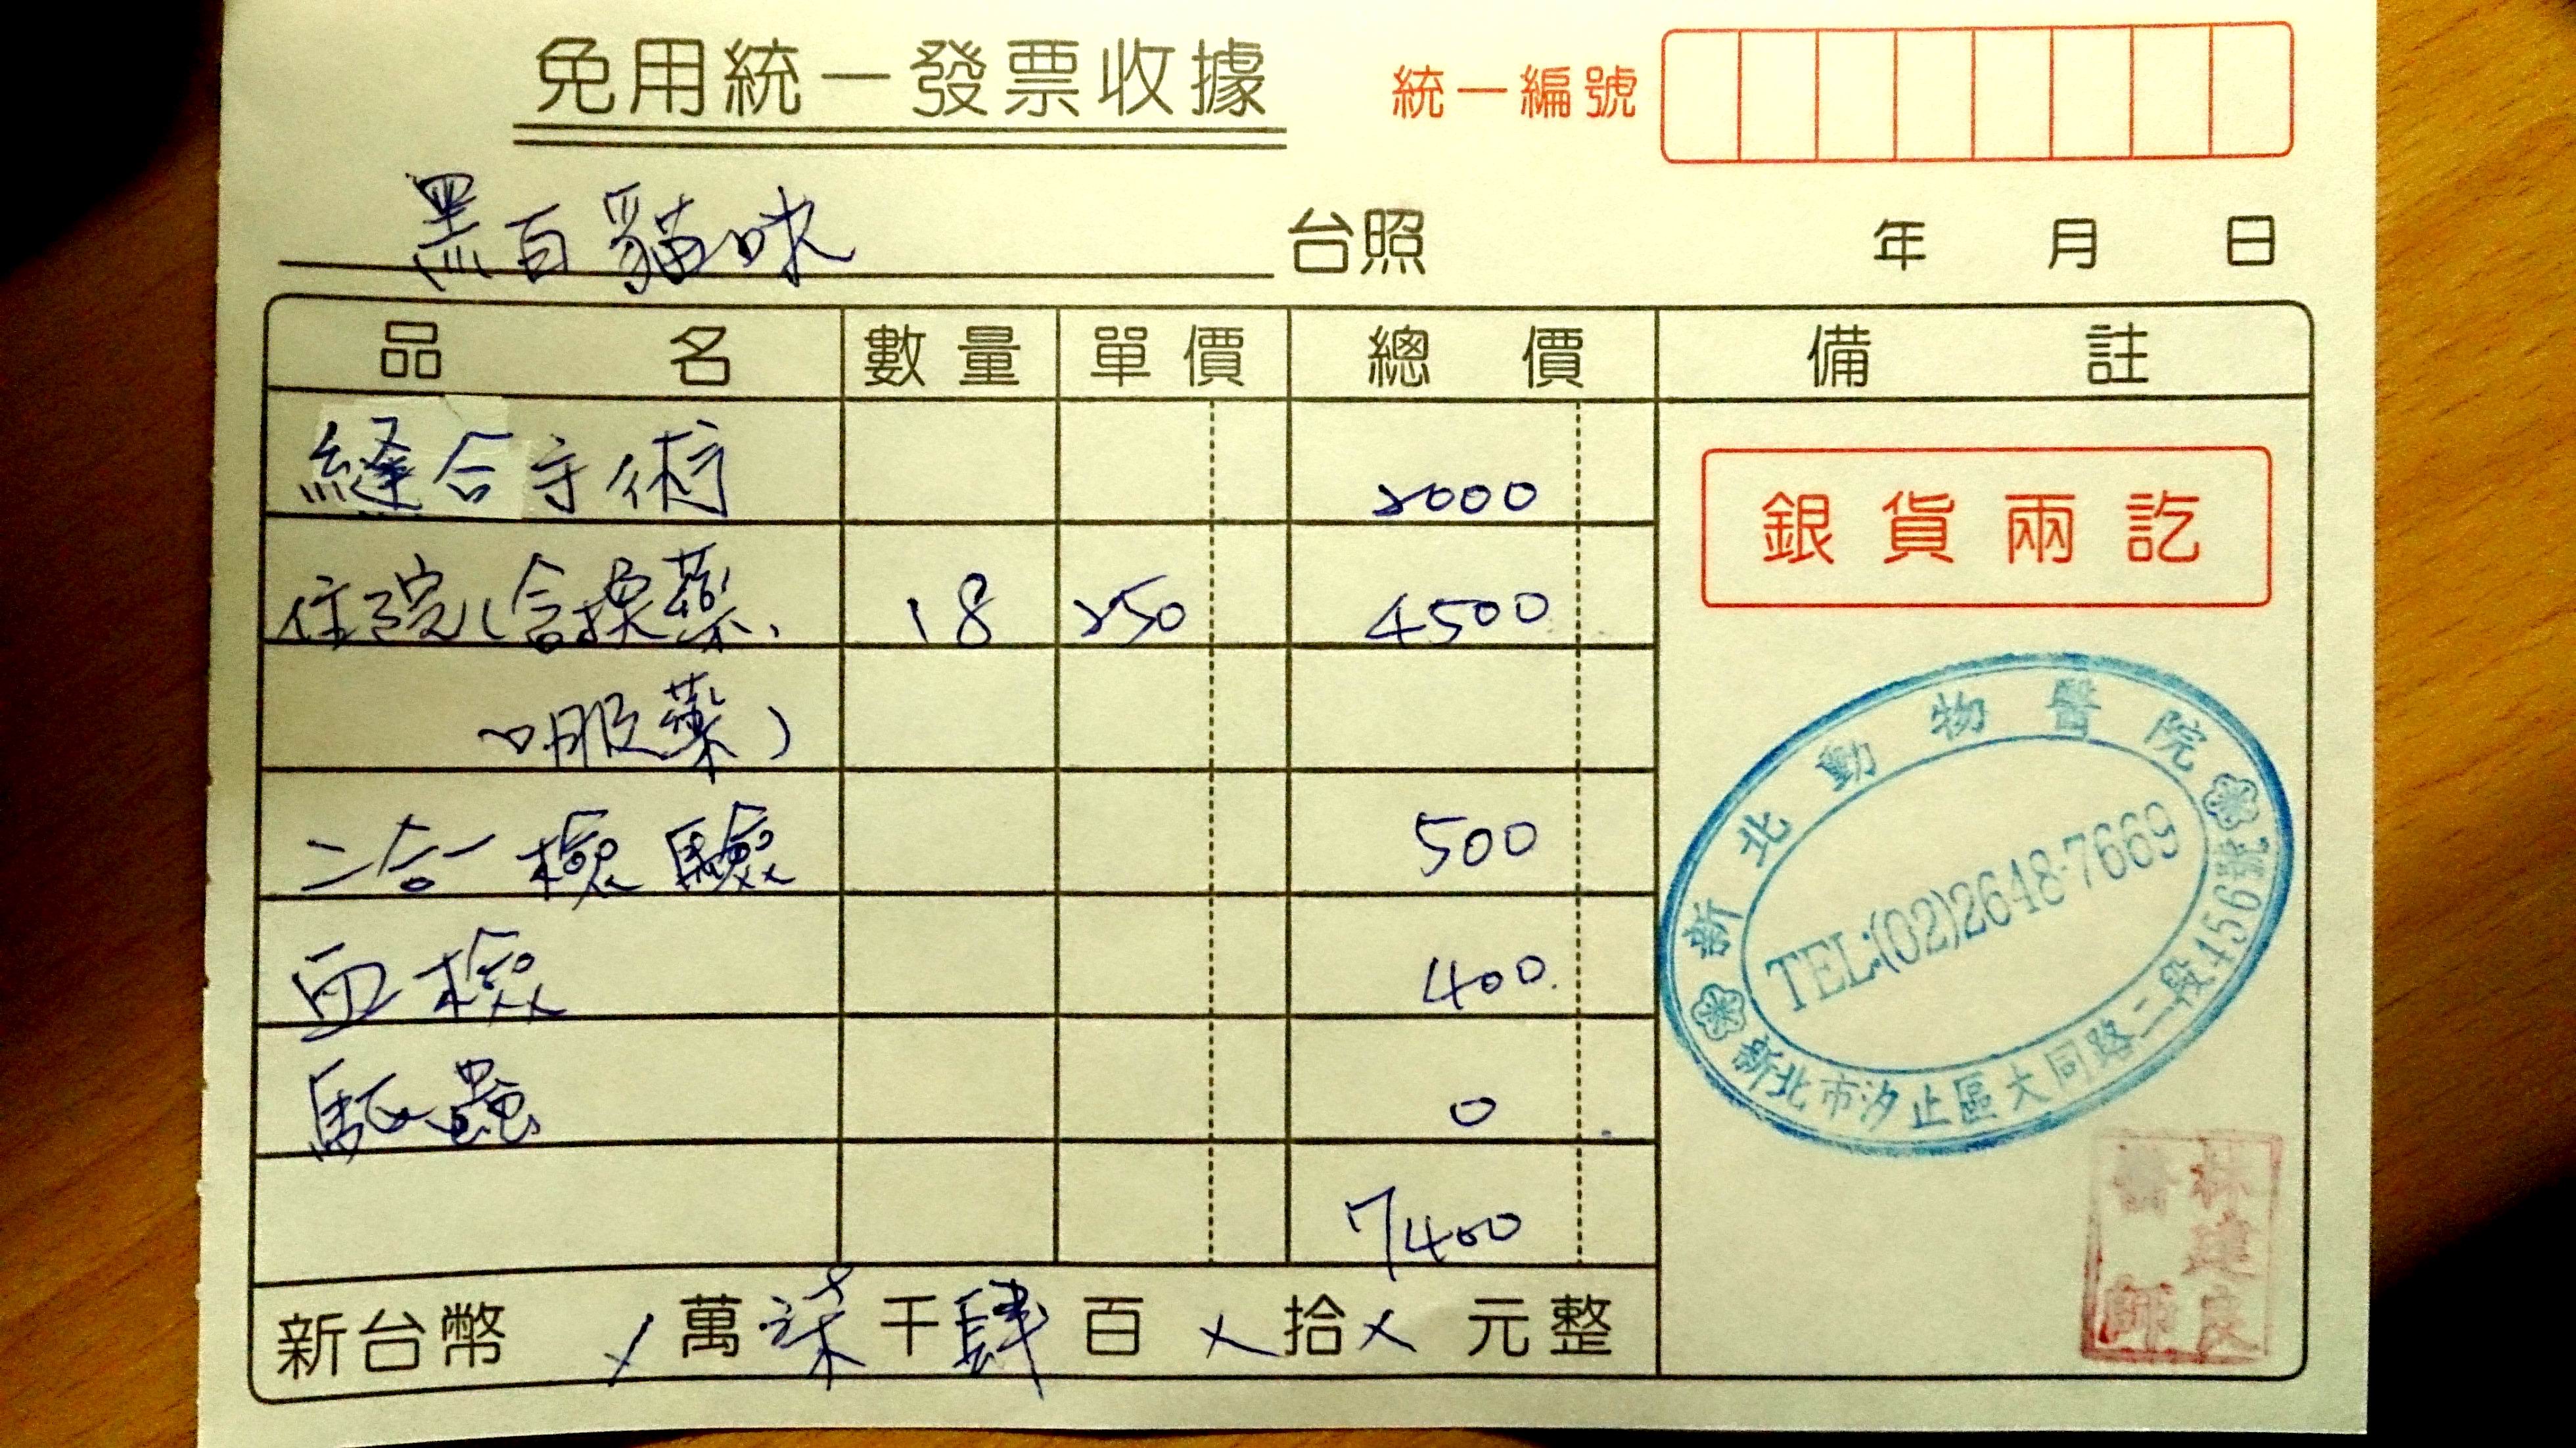 免用統一發票收據
統一編號
黑白貓咪 台照 年 月 日
品名 數量 單價 總價 備註
縫合手術 2000
住院(含換藥、 18 250 4500
口服藥)
二合一檢驗 500
血檢 400
驅蟲 0
7400
新台幣 / 萬 柒 千 肆 百 x 拾 x 元整
銀貨兩訖
新北動物醫院
TEL:(02)2648-7669
新北市汐止區大同路二段456號
林建良
醫師